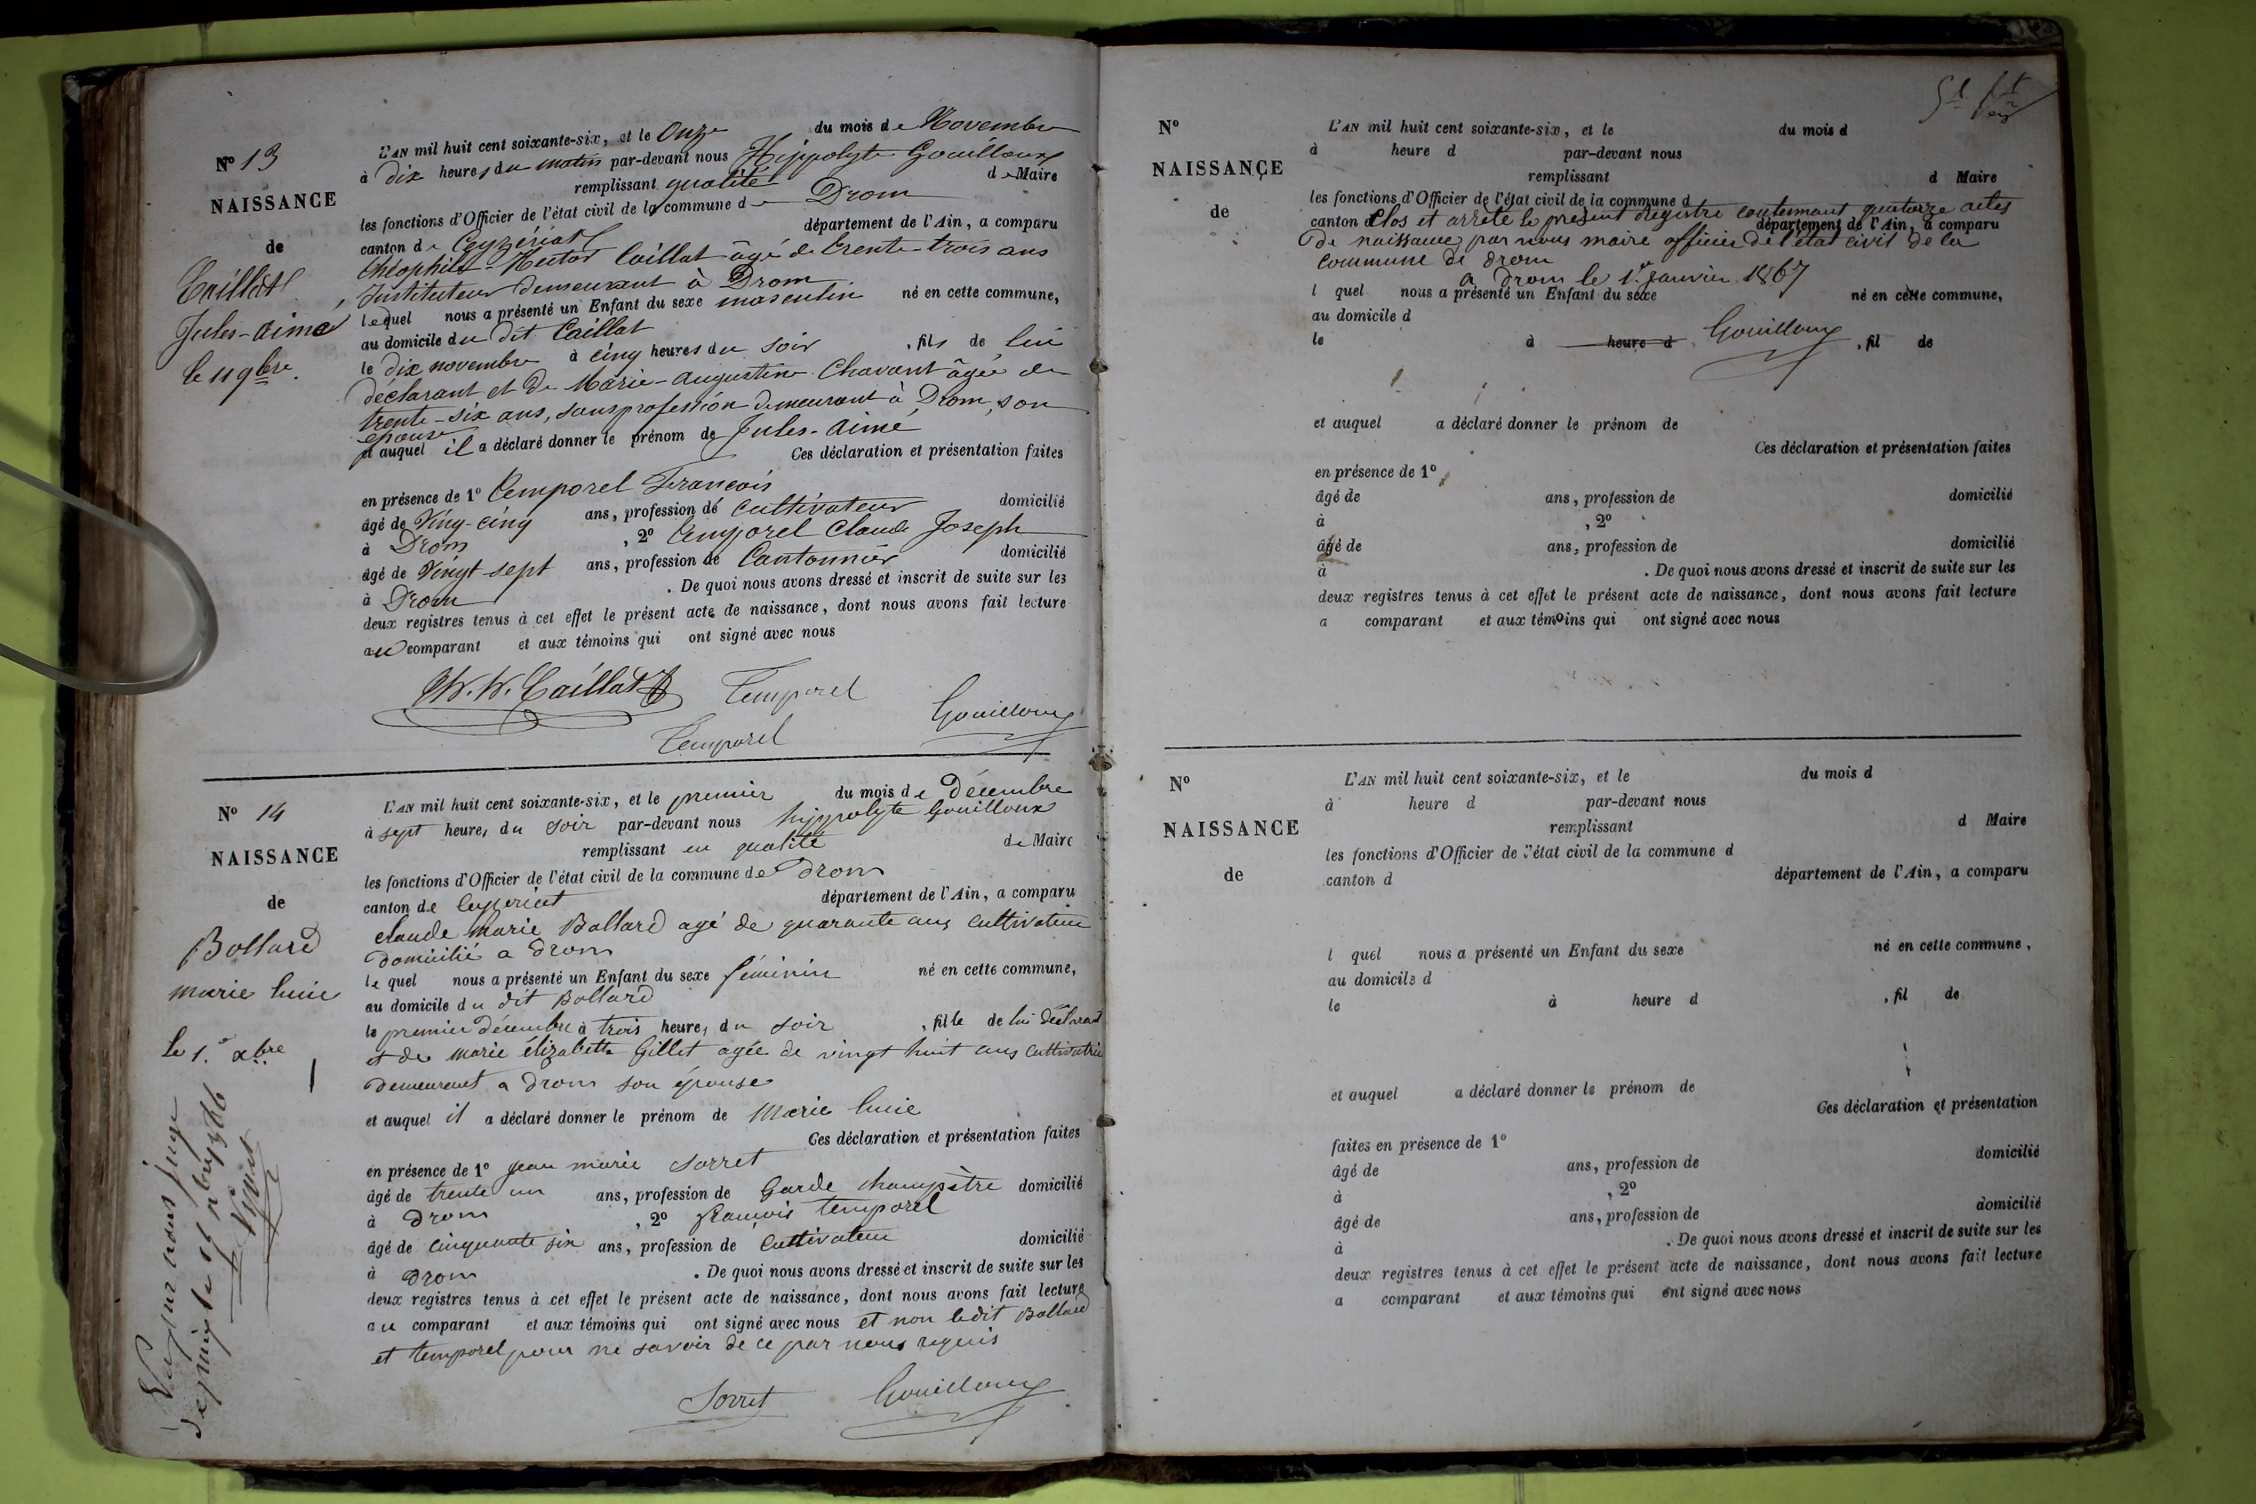 Nº 13
NAISSANCE
de
Caillat
Jules-aimé
le 11 9bre.
L'AN mil huit cent soixante-six, et le Onze du mois de Novembre
à dix heures du matin par-devant nous Hippolyte Gouilloux
remplissant qualité de Maire
les fonctions d'Officier de l'état civil de la commune de Drom
canton de Ceyzériat département de l'Ain, a comparu
Théophile-Nestor Caillat âgé de trente-trois ans
Instituteur demeurant à Drom
lequel nous a présenté un Enfant du sexe masculin né en cette commune,
au domicile du dit Caillat
le dix novembre à cinq heures du soir, fils de lui
déclarant et de Marie-augustine Chavant âgée de
trente-six ans, sans profession demeurant à Drom, son
épouse
et auquel il a déclaré donner le prénom de Jules-aimé
Ces déclaration et présentation faites
en présence de 1º Temporel François
âgé de Ving-cinq ans, profession de Cultivateur domicilié
à Drom, 2º Temporel Claude Joseph
âgé de Vingt-sept ans, profession de Cantonnier domicilié
à Drom. De quoi nous avons dressé et inscrit de suite sur les
deux registres tenus à cet effet le présent acte de naissance, dont nous avons fait lecture
au comparant et aux témoins qui ont signé avec nous
Caillat Temporel
Gouilloux
Temporel
Nº 14
NAISSANCE
de
Bollard
marie lucie
le 1er xbre
L'AN mil huit cent soixante-six, et le premier du mois de Décembre
à sept heures du soir par-devant nous hippolyte Gouilloux
remplissant en qualité de Maire
les fonctions d'Officier de l'état civil de la commune de Drom
canton de Ceyzériat département de l'Ain, a comparu
Claude Marie Bollard agé de quarante ans cultivateur
domicilié a Drom
le quel nous a présenté un Enfant du sexe féminin né en cette commune,
au domicile du dit Bollard
le premier décembre à trois heures du soir, fille de lui déclarant
et de marie élizabette Gillet agée de vingt huit ans cultivatrice
demeurant a drom son épouse
et auquel il a déclaré donner le prénom de Marie lucie
Ces déclaration et présentation faites
en présence de 1º jean marie Sorret
âgé de trente un ans, profession de Garde champètre domicilié
à Drom, 2º francois temporel
âgé de cinquante six ans, profession de Cultivateur domicilié
à Drom. De quoi nous avons dressé et inscrit de suite sur les
deux registres tenus à cet effet le présent acte de naissance, dont nous avons fait lecture
au comparant et aux témoins qui ont signé avec nous et non ledit Bollard
et temporel pour ne savoir de ce par nous requis
Sorret Gouilloux
Vu par nous juge
de paix
Nº
NAISSANCE
de
L'AN mil huit cent soixante-six, et le du mois d
à heure d par-devant nous
remplissant d Maire
les fonctions d'Officier de l'état civil de la commune d
canton d département de l'Ain, a comparu
Clos et arrêté le présent registre contenant quatorze actes
de naissance, par nous maire officier de l'état civil de la
commune de drom
a Drom le 1er janvier 1867
l quel nous a présenté un Enfant du sexe né en cette commune,
au domicile d
le à heure d, fil de
Gouilloux
et auquel a déclaré donner le prénom de
Ces déclaration et présentation faites
en présence de 1º
âgé de ans, profession de domicilié
à, 2º
âgé de ans, profession de domicilié
à. De quoi nous avons dressé et inscrit de suite sur les
deux registres tenus à cet effet le présent acte de naissance, dont nous avons fait lecture
a comparant et aux témoins qui ont signé avec nous
Nº
NAISSANCE
de
L'AN mil huit cent soixante-six, et le du mois d
à heure d par-devant nous
remplissant d Maire
les fonctions d'Officier de l'état civil de la commune d
canton d département de l'Ain, a comparu
l quel nous a présenté un Enfant du sexe né en cette commune,
au domicile d
le à heure d, fil de
et auquel a déclaré donner le prénom de
Ces déclaration et présentation
faites en présence de 1º
âgé de ans, profession de domicilié
à, 2º
âgé de ans, profession de domicilié
à. De quoi nous avons dressé et inscrit de suite sur les
deux registres tenus à cet effet le présent acte de naissance, dont nous avons fait lecture
a comparant et aux témoins qui ont signé avec nous